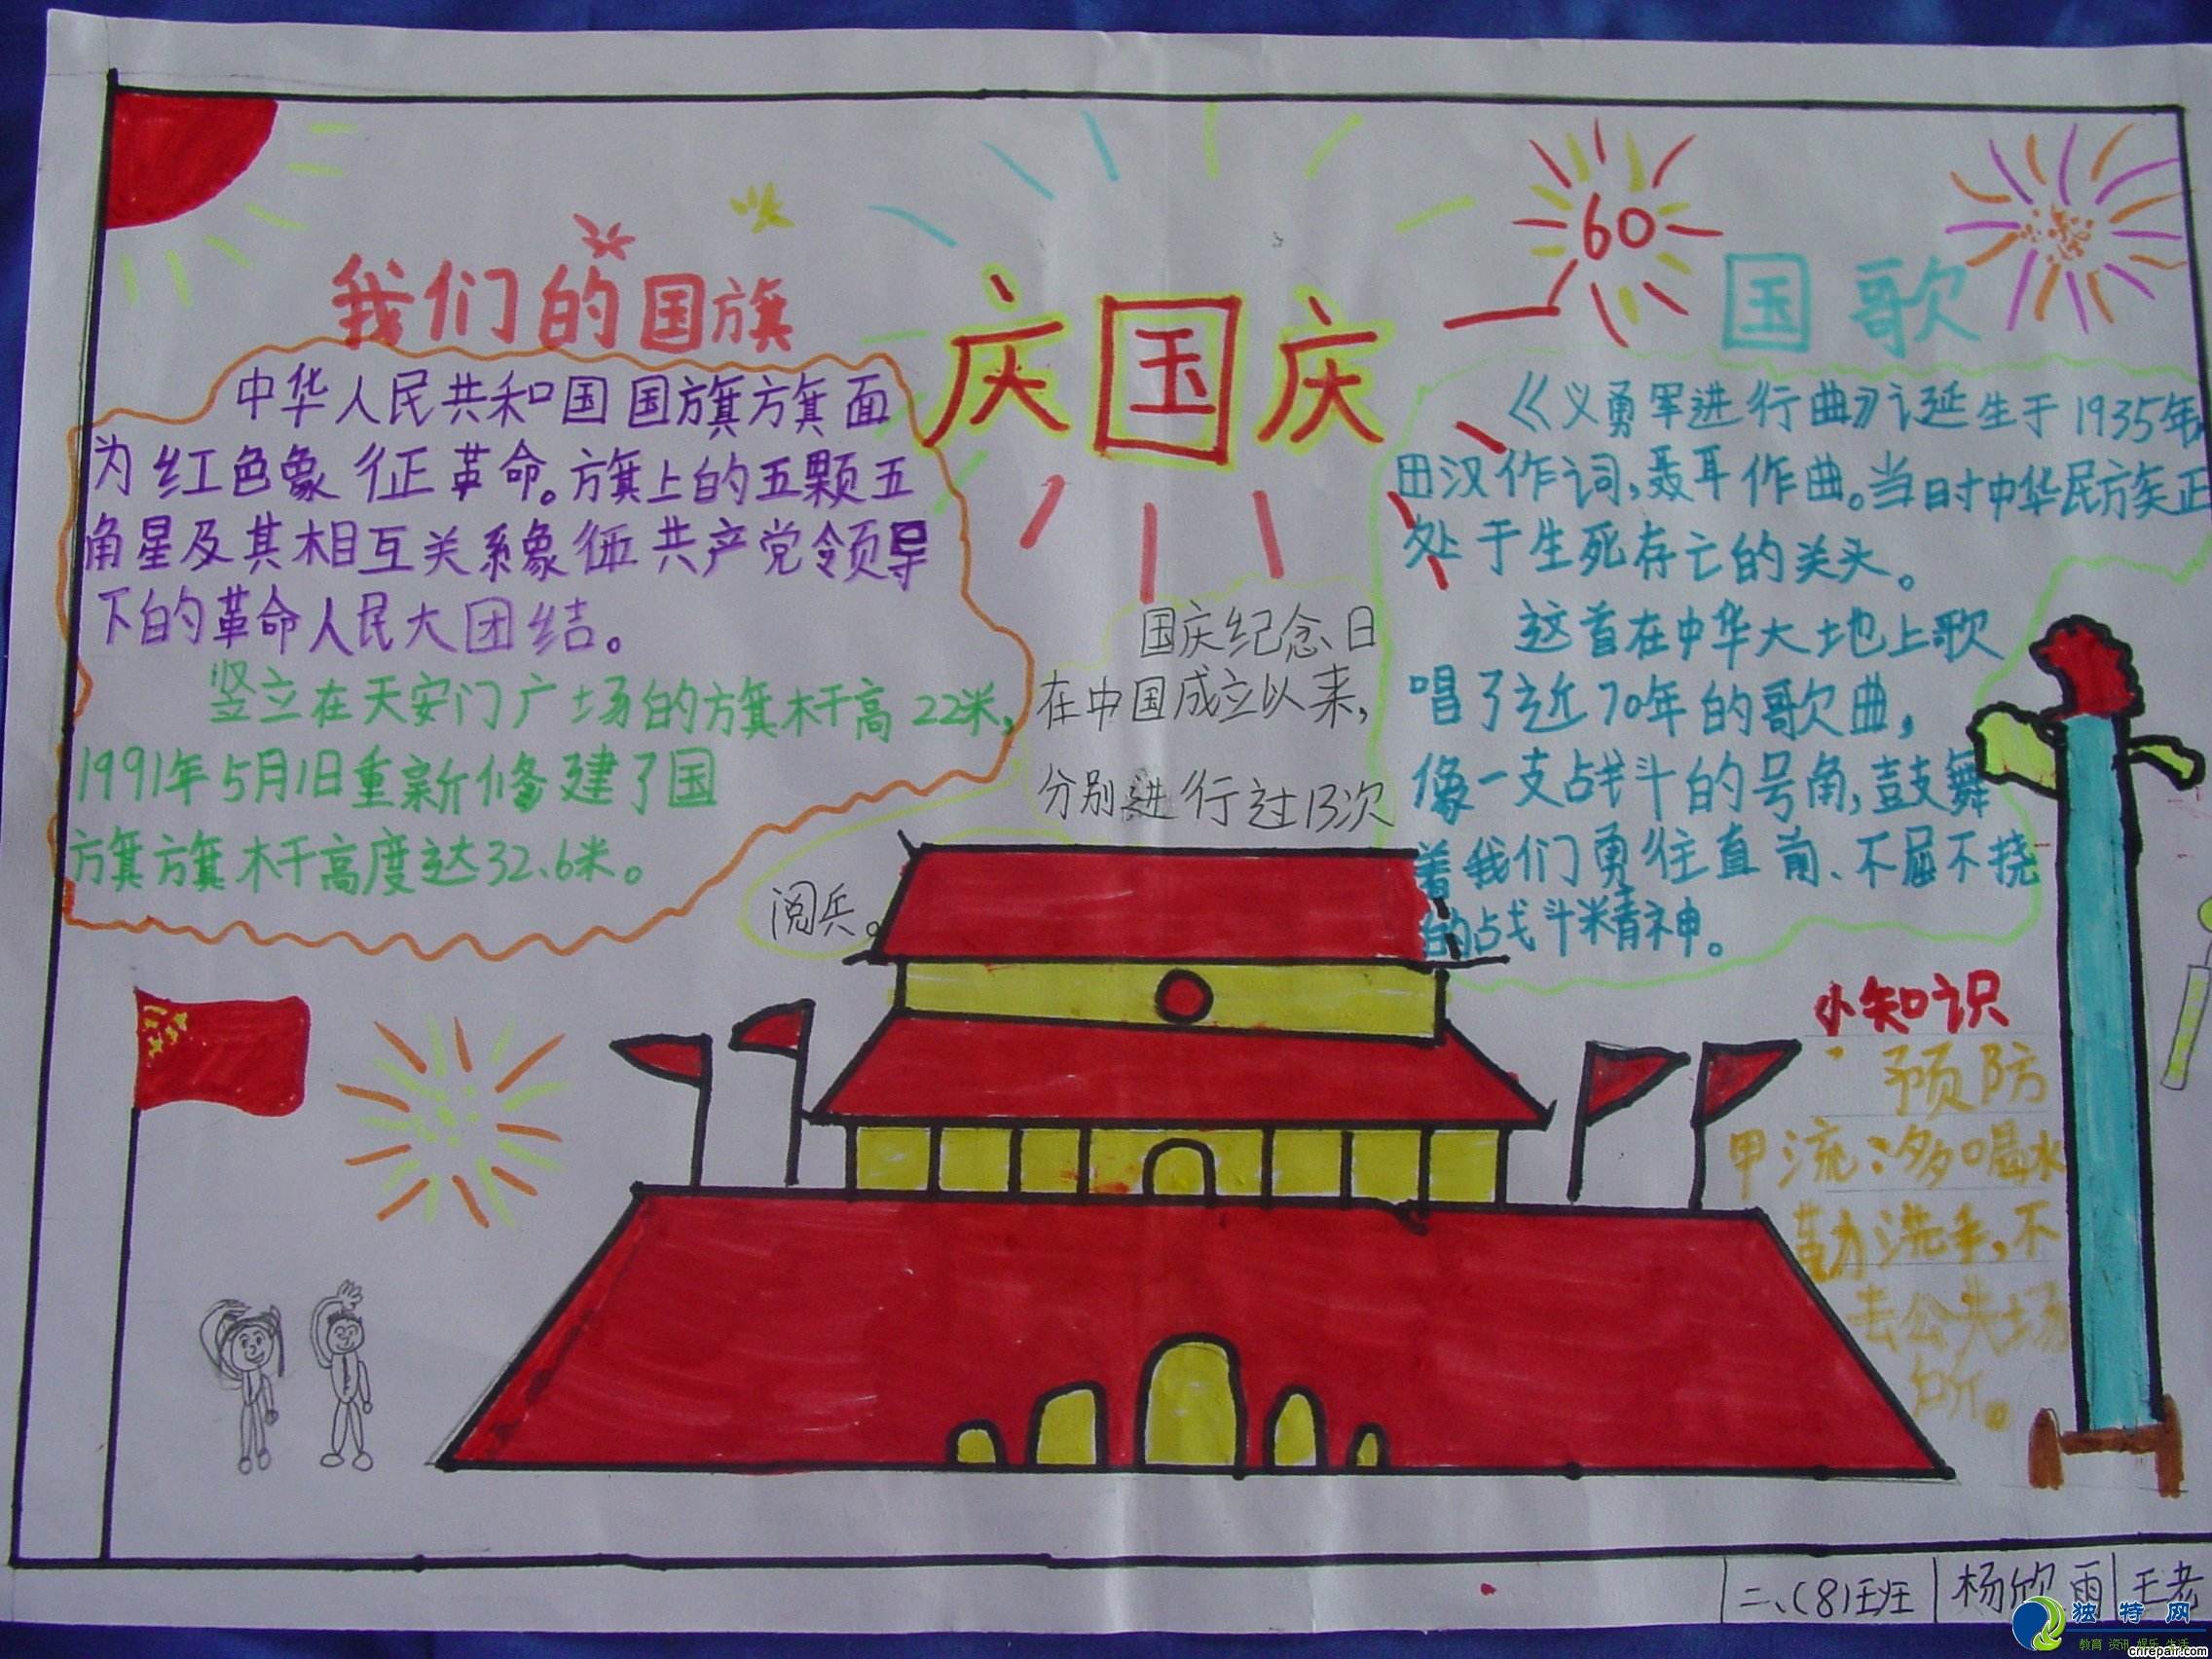 我们的国旗
中华人民共和国国旗旗面
为红色象征革命。旗上的五颗五
角星及其相互关系象征共产党领导
下的革命人民大团结。
竖立在天安门广场的旗杆高22米,
1991年5月1日重新修建了国
旗旗杆高度达32.6米。
庆国庆
国庆纪念日
在中国成立以来,
分别进行过13次
阅兵。
60
国歌
《义勇军进行曲》诞生于1935年
田汉作词,聂耳作曲。当时中华民族正
处于生死存亡的关头。
这首在中华大地上歌
唱了近70年的歌曲,
像一支战斗的号角,鼓舞
着我们勇往直前、不屈不挠
的战斗精神。
小知识
预防
甲流:多喝水
勤洗手,不
去公共场
所。
二、(8)班 杨欣雨 王老
独特网
教育 资讯 娱乐 生活
cnrepair.com